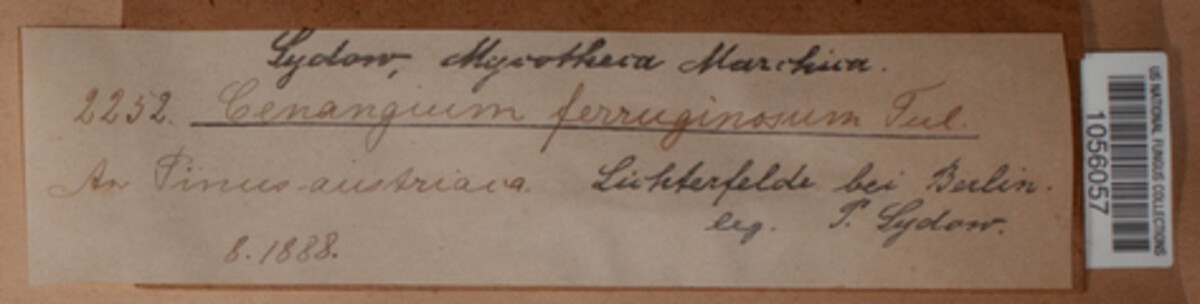 Sydow, Mycotheca Marchica.
2252. Cenangium ferruginosum Tul.
An Pinus austriaca. Lichterfelde bei Berlin.
leg. P. Sydow.
8.1888.
US NATIONAL FUNGUS COLLECTIONS
1056057